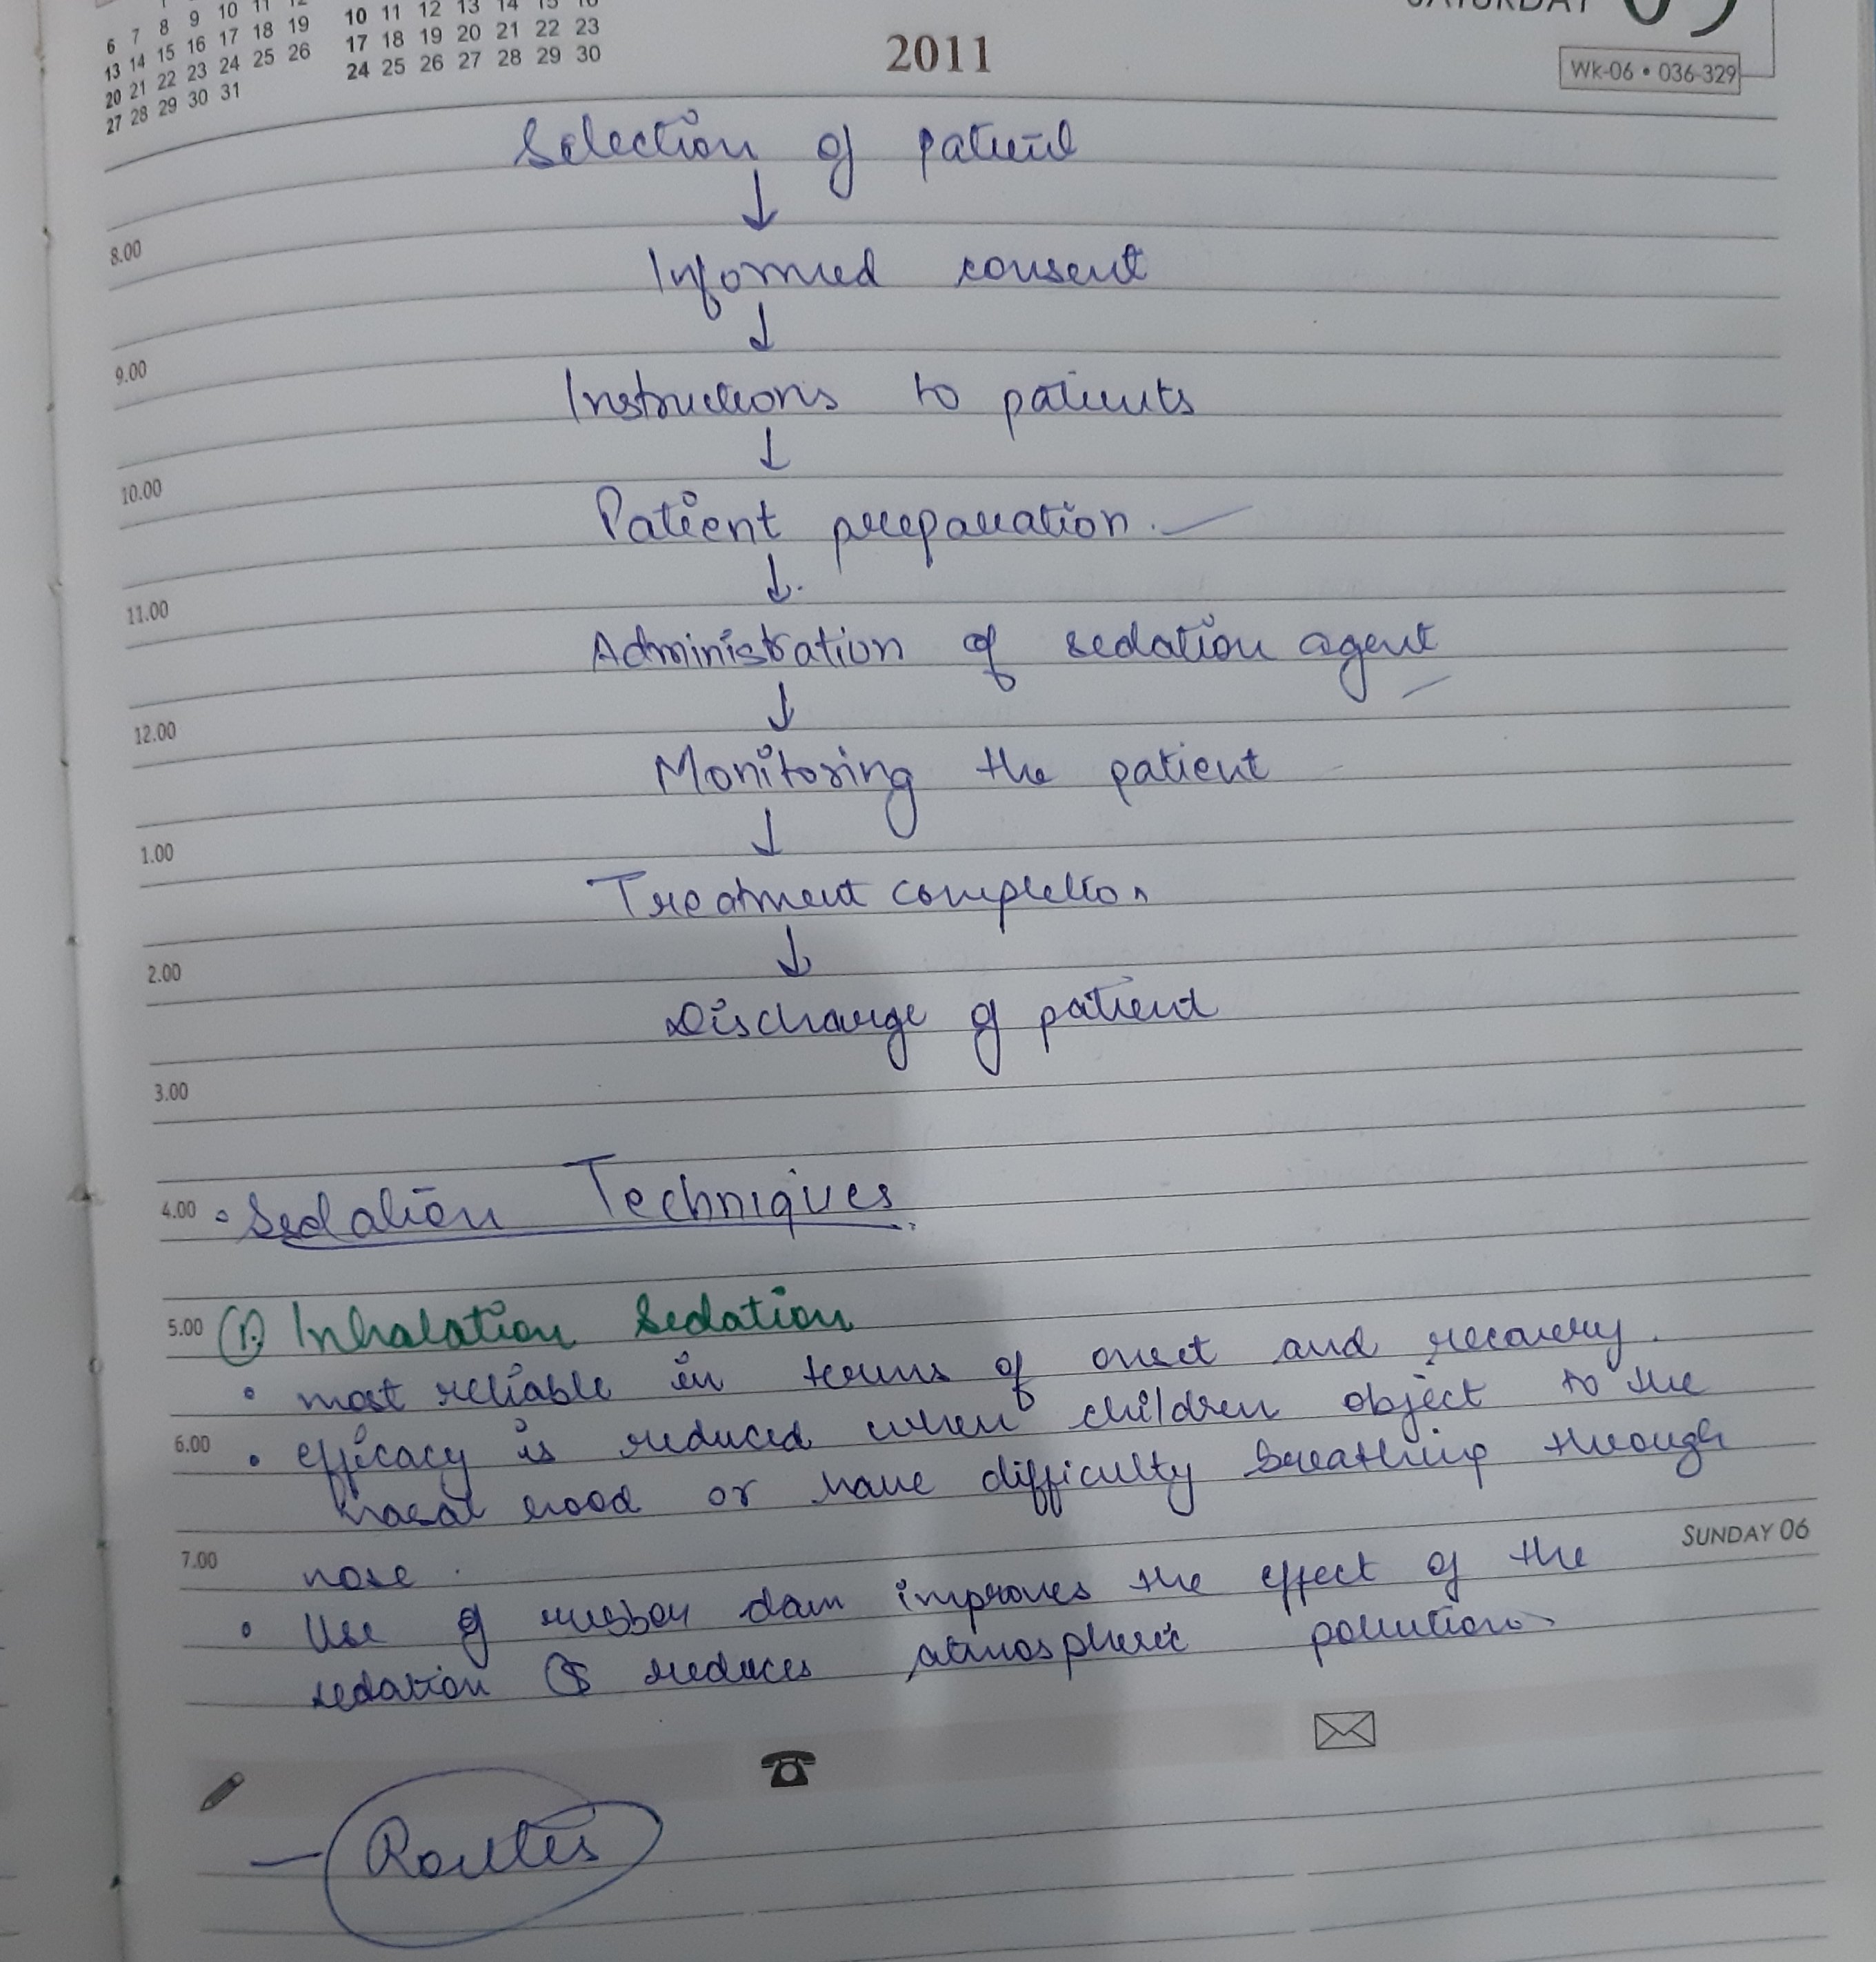 6 7 8 9 10 11 12
13 14 15 16 17 18 19
20 21 22 23 24 25 26
27 28 29 30 31
10 11 12 13 14 15 16
17 18 19 20 21 22 23
24 25 26 27 28 29 30
2011
SATURDAY 05
Wk-06 • 036-329
Selection of patient
↓
8.00
Informed consent
↓
9.00
Instructions to patients
↓
10.00
Patient preparation.
↓
11.00
Administration of sedation agent
↓
12.00
Monitoring the patient
↓
1.00
Treatment completion
↓
2.00
Discharge of patient
3.00
4.00
• Sedation Techniques
5.00
1. Inhalation Sedation
• most reliable in terms of onset and recovery.
6.00
• efficacy is reduced when children object to the
nasal hood or have difficulty breathing through
7.00
nose.
SUNDAY 06
• Use of rubber dam improves the effect of the
sedation & reduces atmospheric pollution
— Routes